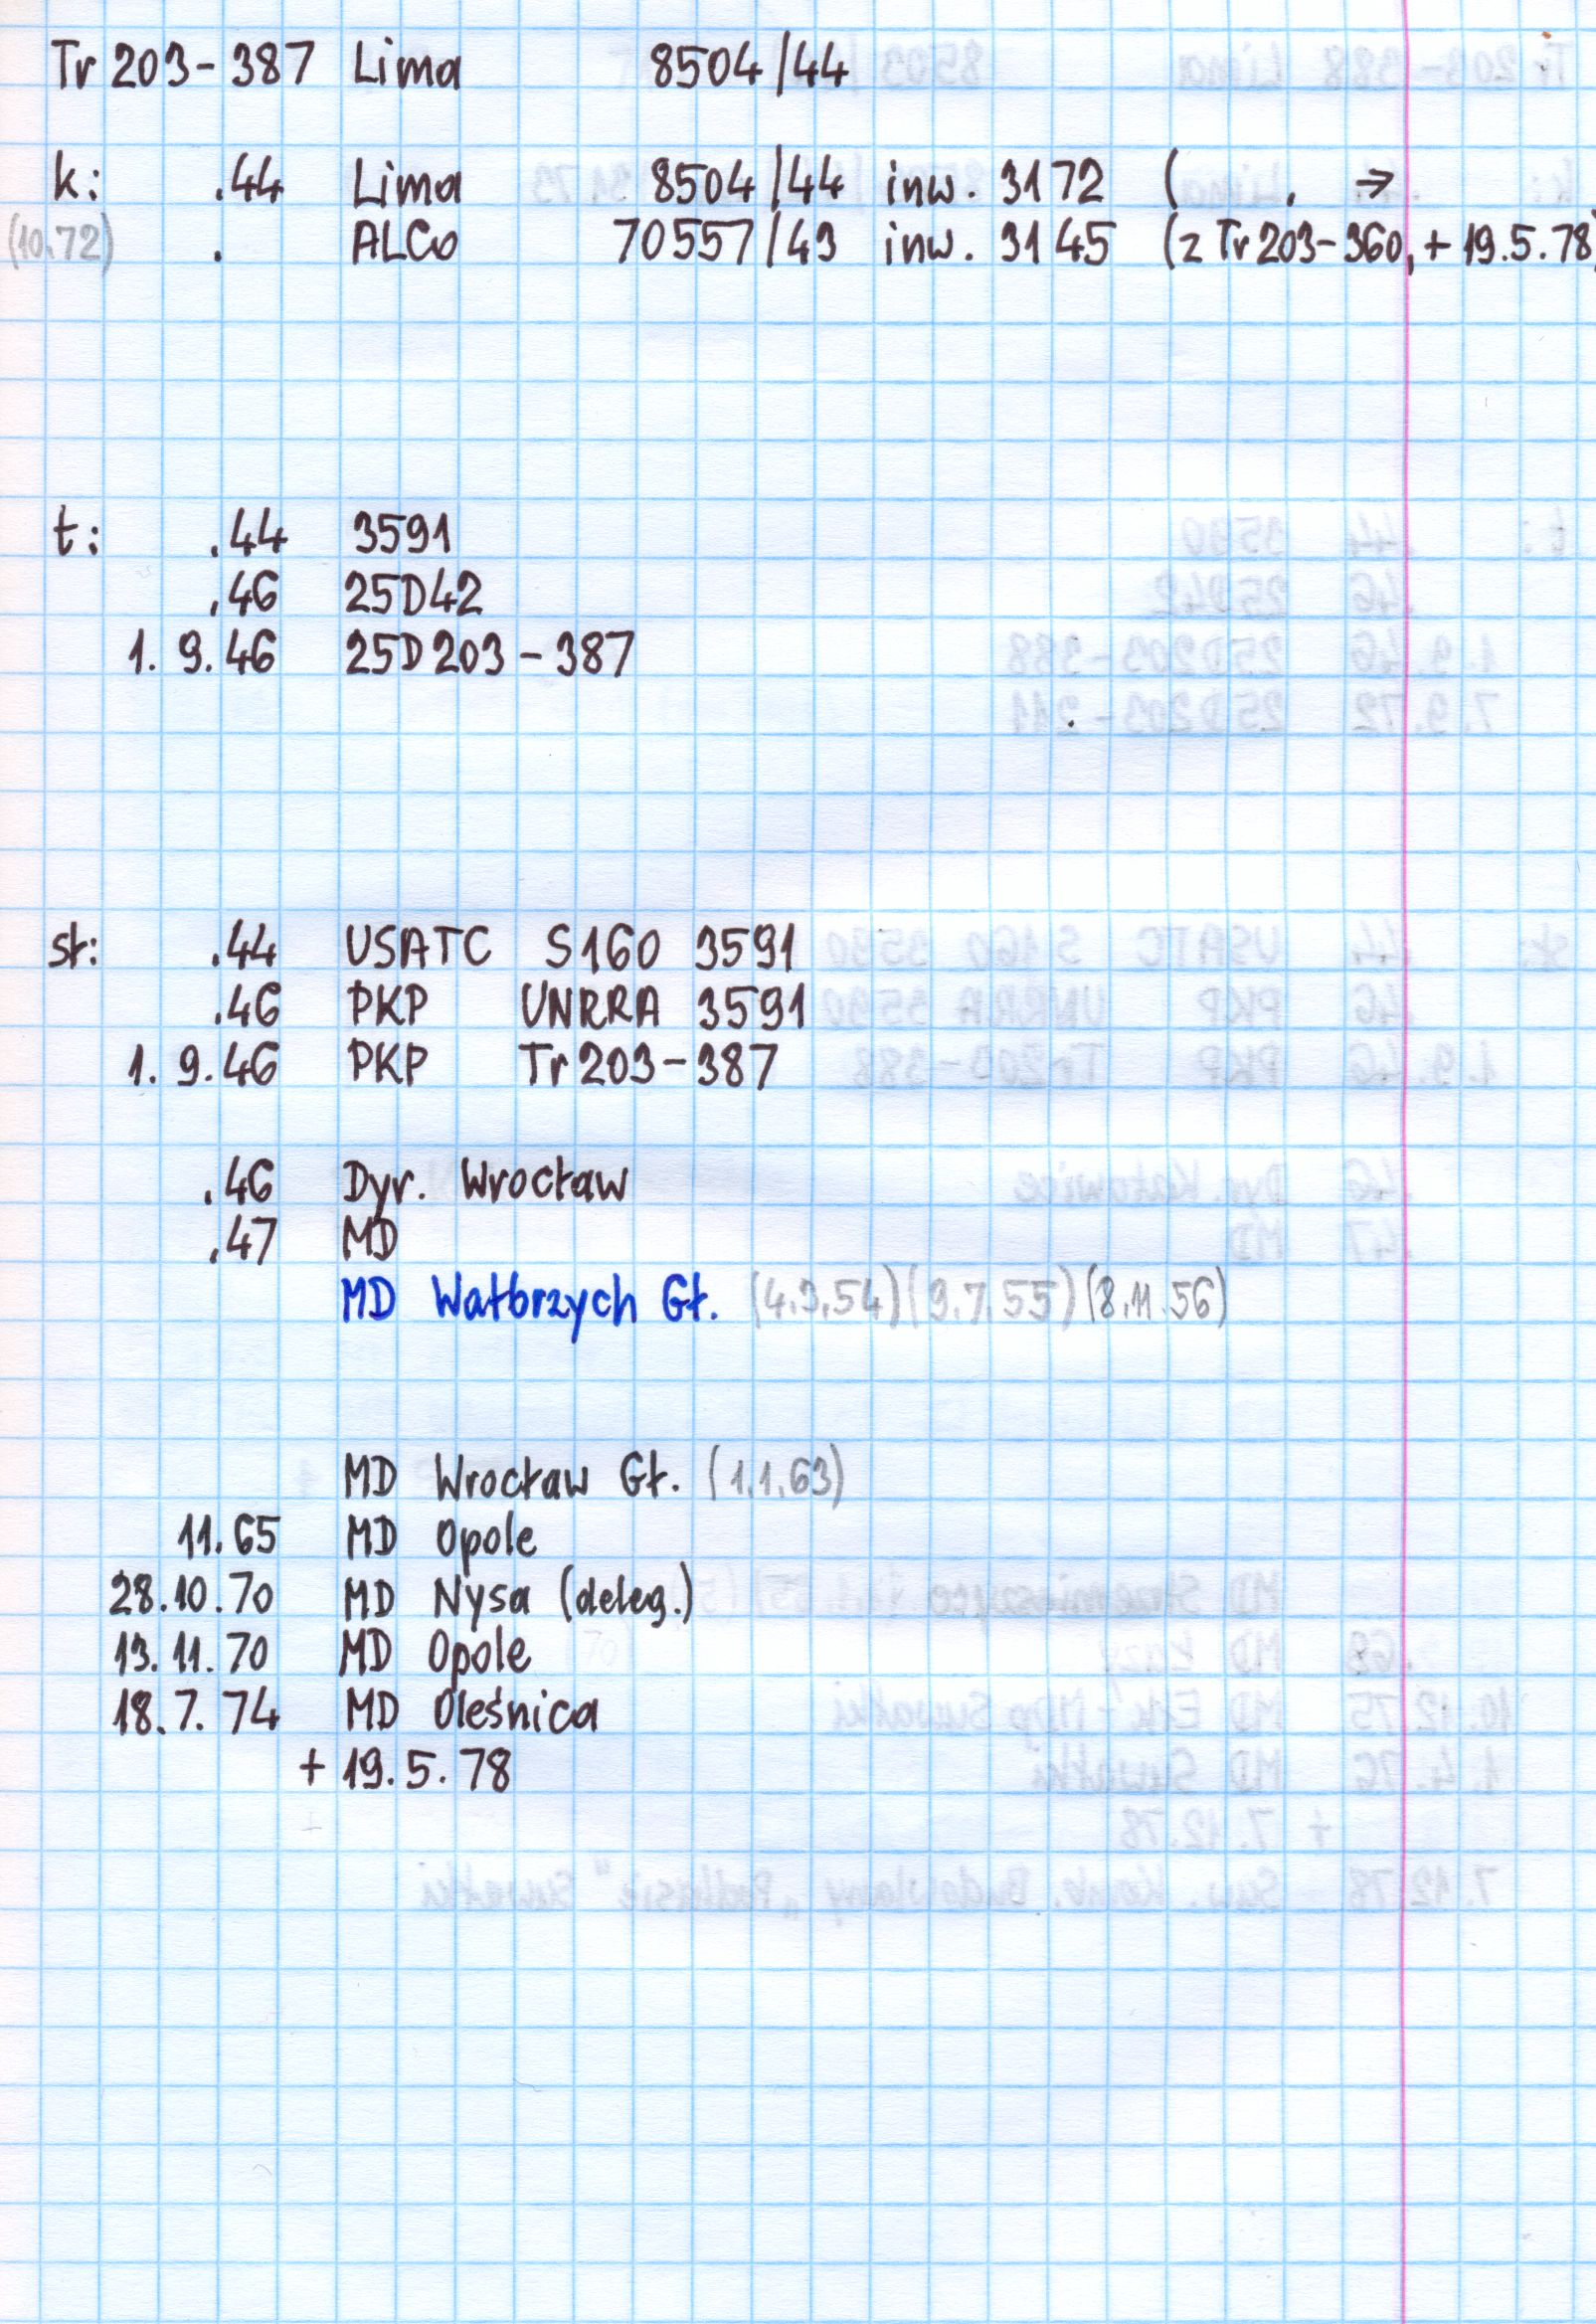 Tr 203-387 Lima 8504/44
k: .44 Lima 8504/44 inw. 3172 ( . →
(10.72) . ALCo 70557/43 inw. 3145 (z Tr 203-360, + 19.5.78)
t: .44 3591
.46 25D42
1. 9.46 25D203-387
sł: .44 USATC S160 3591
.46 PKP UNRRA 3591
1. 9.46 PKP Tr 203-387
.46 Dyr. Wrocław
.47 MD
MD Wałbrzych Gł. (4.3.54)(9.7.55)(8.11.56)
MD Wrocław Gł. (1.1.63)
11.65 MD Opole
28.10.70 MD Nysa (deleg.)
13.11.70 MD Opole
18.7.74 MD Oleśnica
+ 19.5.78